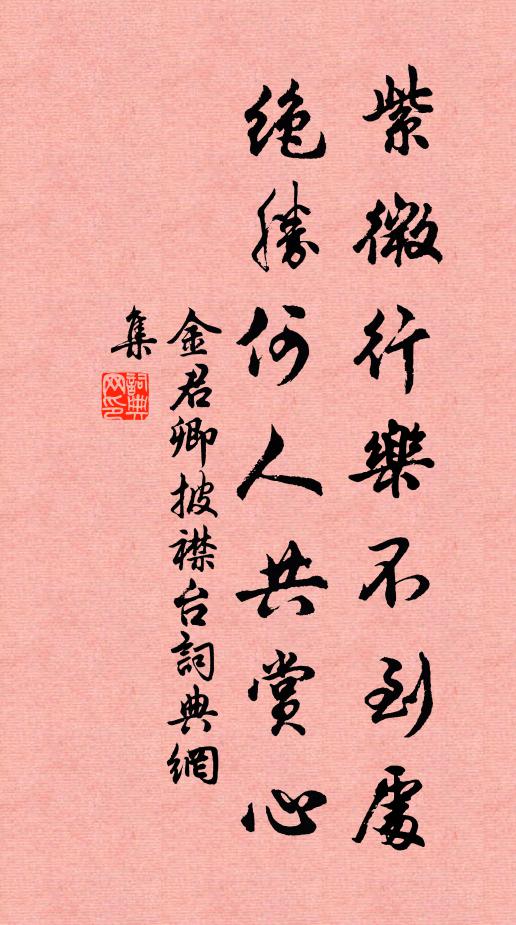 紫微行樂不到處
絶勝何人共賞心
金君卿披襟台詞典網
集
詞典網印